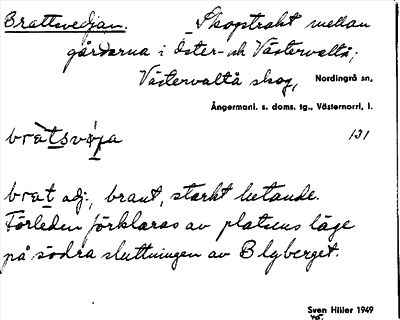 Brattsvedjan. Skogstrakt mellan
gårdarna i Öster- och Västervalta;
Västervaltå skog, Nordingrå sn,
Ångermanl. s. doms. tg., Västernorrl. l.
131
brat adj., brant, starkt lutande.
Förleden förklaras av platsens läge
på södra sluttningen av Blyberget.
Sven Hiller 1949